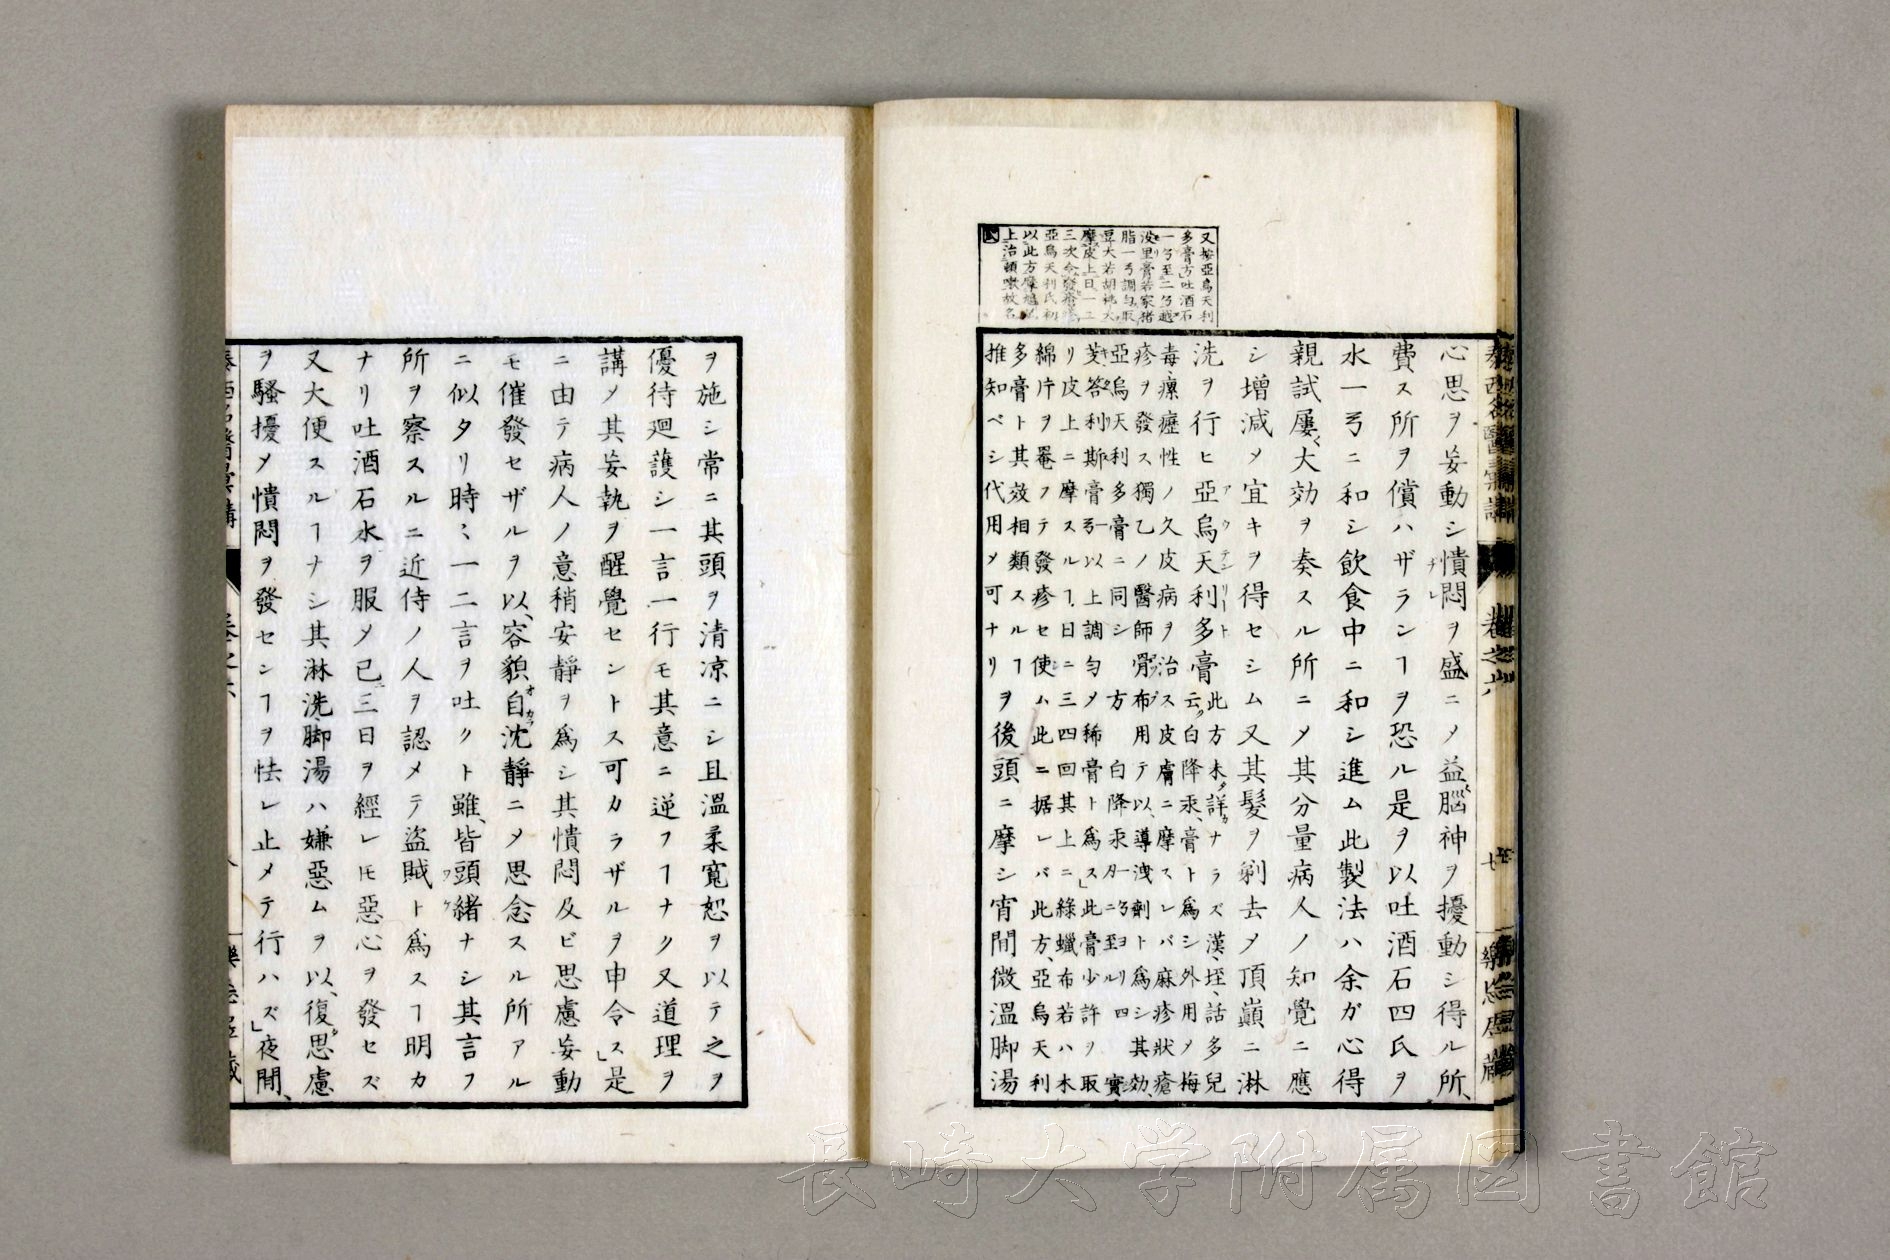 又按亞烏天利
多膏方吐酒石
一ゟ至二ゟ越
沒里膏若家猪
脂一ゟ調勻取
豆大若胡桃大
摩皮上日一二
三次令發瘡疹
亞烏天利氏初
以此方摩旭
上治頓嗽故名
心思ヲ妄動シ憒悶ヲ盛ニメ益腦神ヲ擾動シ得ル所、
費ス所ヲ償ハザランヿヲ恐ル是ヲ以吐酒石四氏ヲ
水一弓ニ和シ飲食中ニ和シ進ム此製法ハ余ガ心得
親試屢大効ヲ奏スル所ニメ其分量病人ノ知覺ニ應
シ增減メ宜キヲ得セシム又其髮ヲ剃去メ頂巔ニ淋
洗ヲ行ヒ亞烏天利多膏
此方未詳ナラズ漢、垤、話多兒
云白降汞膏ト爲シ外用メ梅
毒、瘰癧性ノ久皮病ヲ治ス皮膚ニ摩スレバ麻疹狀瘡
疹ヲ發ス獨乙ノ醫師骨布用テ以導洩劑ト爲シ其効、
亞烏天利多膏ニ同シ方白降汞
芰答利斯膏以上調勻メ稀膏ト爲ス此膏少許ヲ取
リ皮上ニ摩スルヿ日ニ三四回其上ニ綠蠟布若ハ木
綿片ヲ罨フテ發疹セ使ム此ニ据レバ此方、亞烏天利
多膏ト其效相類スルヿ
推知ベシ代用メ可ナリ
ヲ後頭ニ摩シ宵間微溫脚湯
ヲ施シ常ニ其頭ヲ清涼ニシ且溫柔寬恕ヲ以テ之ヲ
優待廻護シ一言一行モ其意ニ逆フヿナク又道理ヲ
講メ其妄執ヲ醒覺セントス可カラザルヲ申令ス是
ニ由テ病人ノ意稍安靜ヲ爲シ其憒悶及ビ思慮妄動
モ催發セザルヲ以、容貌自沈靜ニメ思念スル所アル
ニ似タリ時〻一二言ヲ吐クト雖、皆頭緒ナシ其言フ
所ヲ察スルニ近侍ノ人ヲ認メテ盜賊ト爲スヿ明カ
ナリ吐酒石水ヲ服メ已三日ヲ經レ𪜈惡心ヲ發セズ
又大便スルヿナシ其淋洗、脚湯ハ嫌惡ムヲ以、復思慮
ヲ騷擾メ憒悶ヲ發センヿヲ怯レ止メテ行ハズ」夜間、